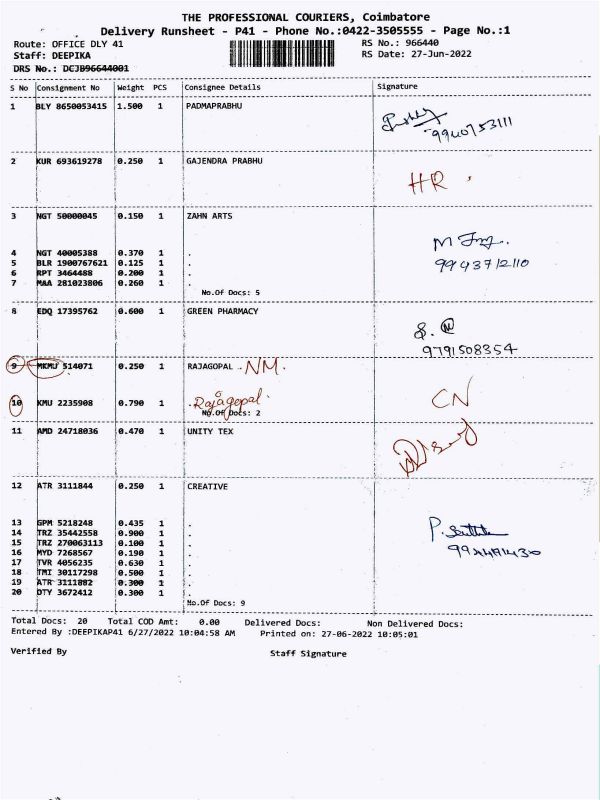 THE PROFESSIONAL COURIERS, Coimbatore
Delivery Runsheet - P41 - Phone No.:0422-3505555 - Page No.:1
Route: OFFICE DLY 41 RS No.: 966440
Staff: DEEPIKA RS Date: 27-Jun-2022
DRS No.: DCJB96644001
S No Consignment No Weight PCS Consignee Details Signature
1 BLY 8650053415 1.500 1 PADMAPRABHU
9940753111
2 KUR 693619278 0.250 1 GAJENDRA PRABHU
HR
3 NGT 50000045 0.150 1 ZAHN ARTS
M
4 NGT 40005388 0.370 1 .
5 BLR 1900767621 0.125 1 .
9943712110
6 RPT 3464488 0.200 1 .
7 MAA 281023806 0.260 1 .
No.Of Docs: 5
8 EDQ 17395762 0.600 1 GREEN PHARMACY
9791508354
9 MKMU 514071 0.250 1 RAJAGOPAL - NM.
10 KMU 2235908 0.790 1 . Rajagopal CN
No.Of Docs: 2
11 AMD 24718036 0.470 1 UNITY TEX
12 ATR 3111844 0.250 1 CREATIVE
13 GPM 5218248 0.435 1 .
14 TRZ 35442558 0.900 1 .
15 TRZ 270063113 0.100 1 .
16 MYD 7268567 0.190 1 .
17 TVR 4056235 0.630 1 .
18 TMI 30117298 0.500 1 .
19 ATR 3111882 0.300 1 .
20 DTY 3672412 0.300 1 .
No.Of Docs: 9
Total Docs: 20 Total COD Amt: 0.00 Delivered Docs: Non Delivered Docs:
Entered By :DEEPIKAP41 6/27/2022 10:04:58 AM Printed on: 27-06-2022 10:05:01
Verified By Staff Signature